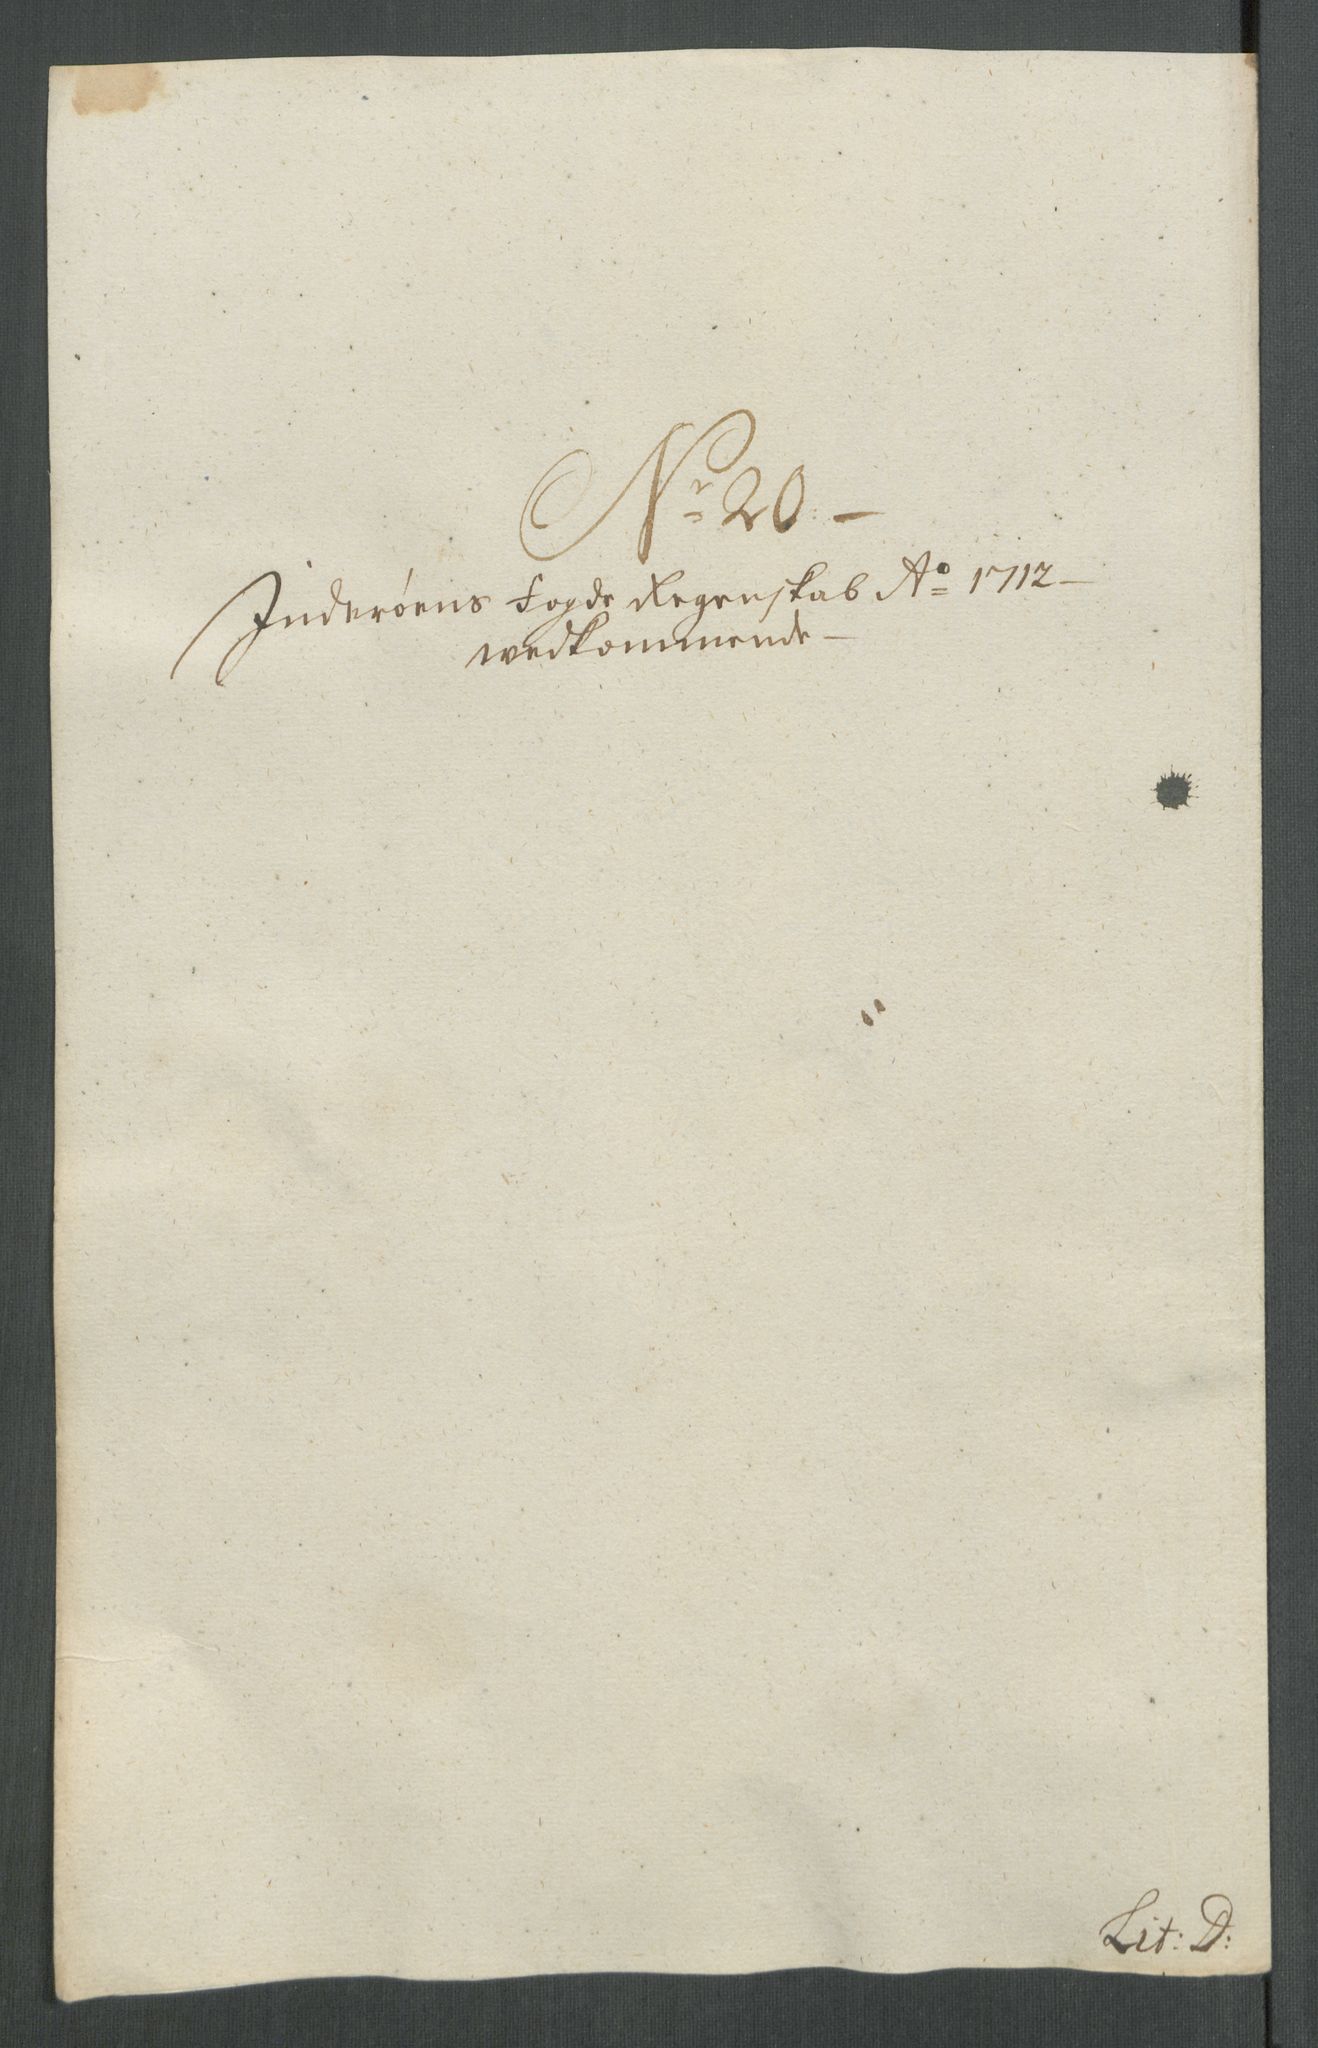 Nr 20. –
Inderöens Fogde Regenskab Ao 1712 –
wedkommende –
Lit: D: